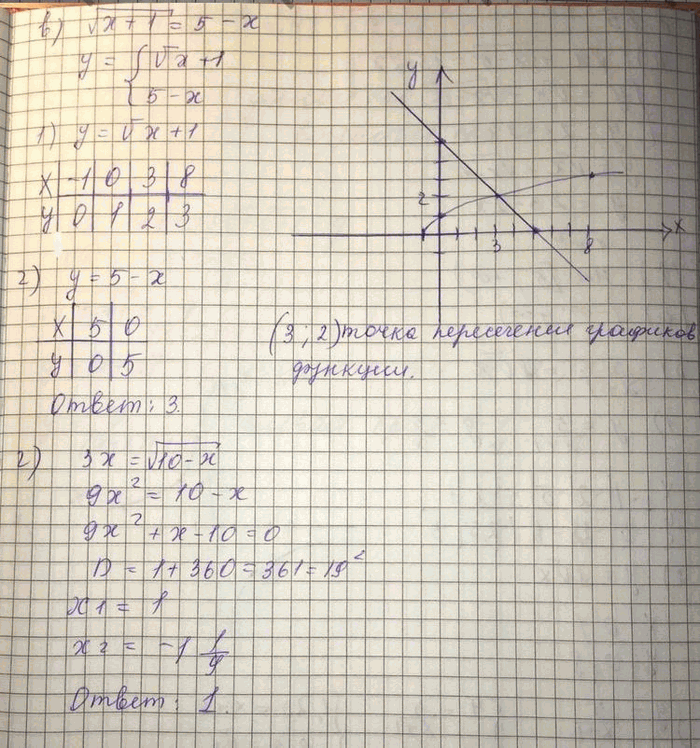 в) √(x+1) = 5 - x
y = { √x+1
5 - x
1) y = √x+1
x | -1 | 0 | 3 | 8
y | 0 | 1 | 2 | 3
y
2
3
8
x
2) y = 5 - x
x | 5 | 0
y | 0 | 5
(3; 2) точка пересечения графиков
функции.
Ответ: 3.
г) 3x = √(10-x)
9x² = 10 - x
9x² + x - 10 = 0
D = 1 + 360 = 361 = 19²
x1 = 1
x2 = -1 1/9
Ответ: 1.